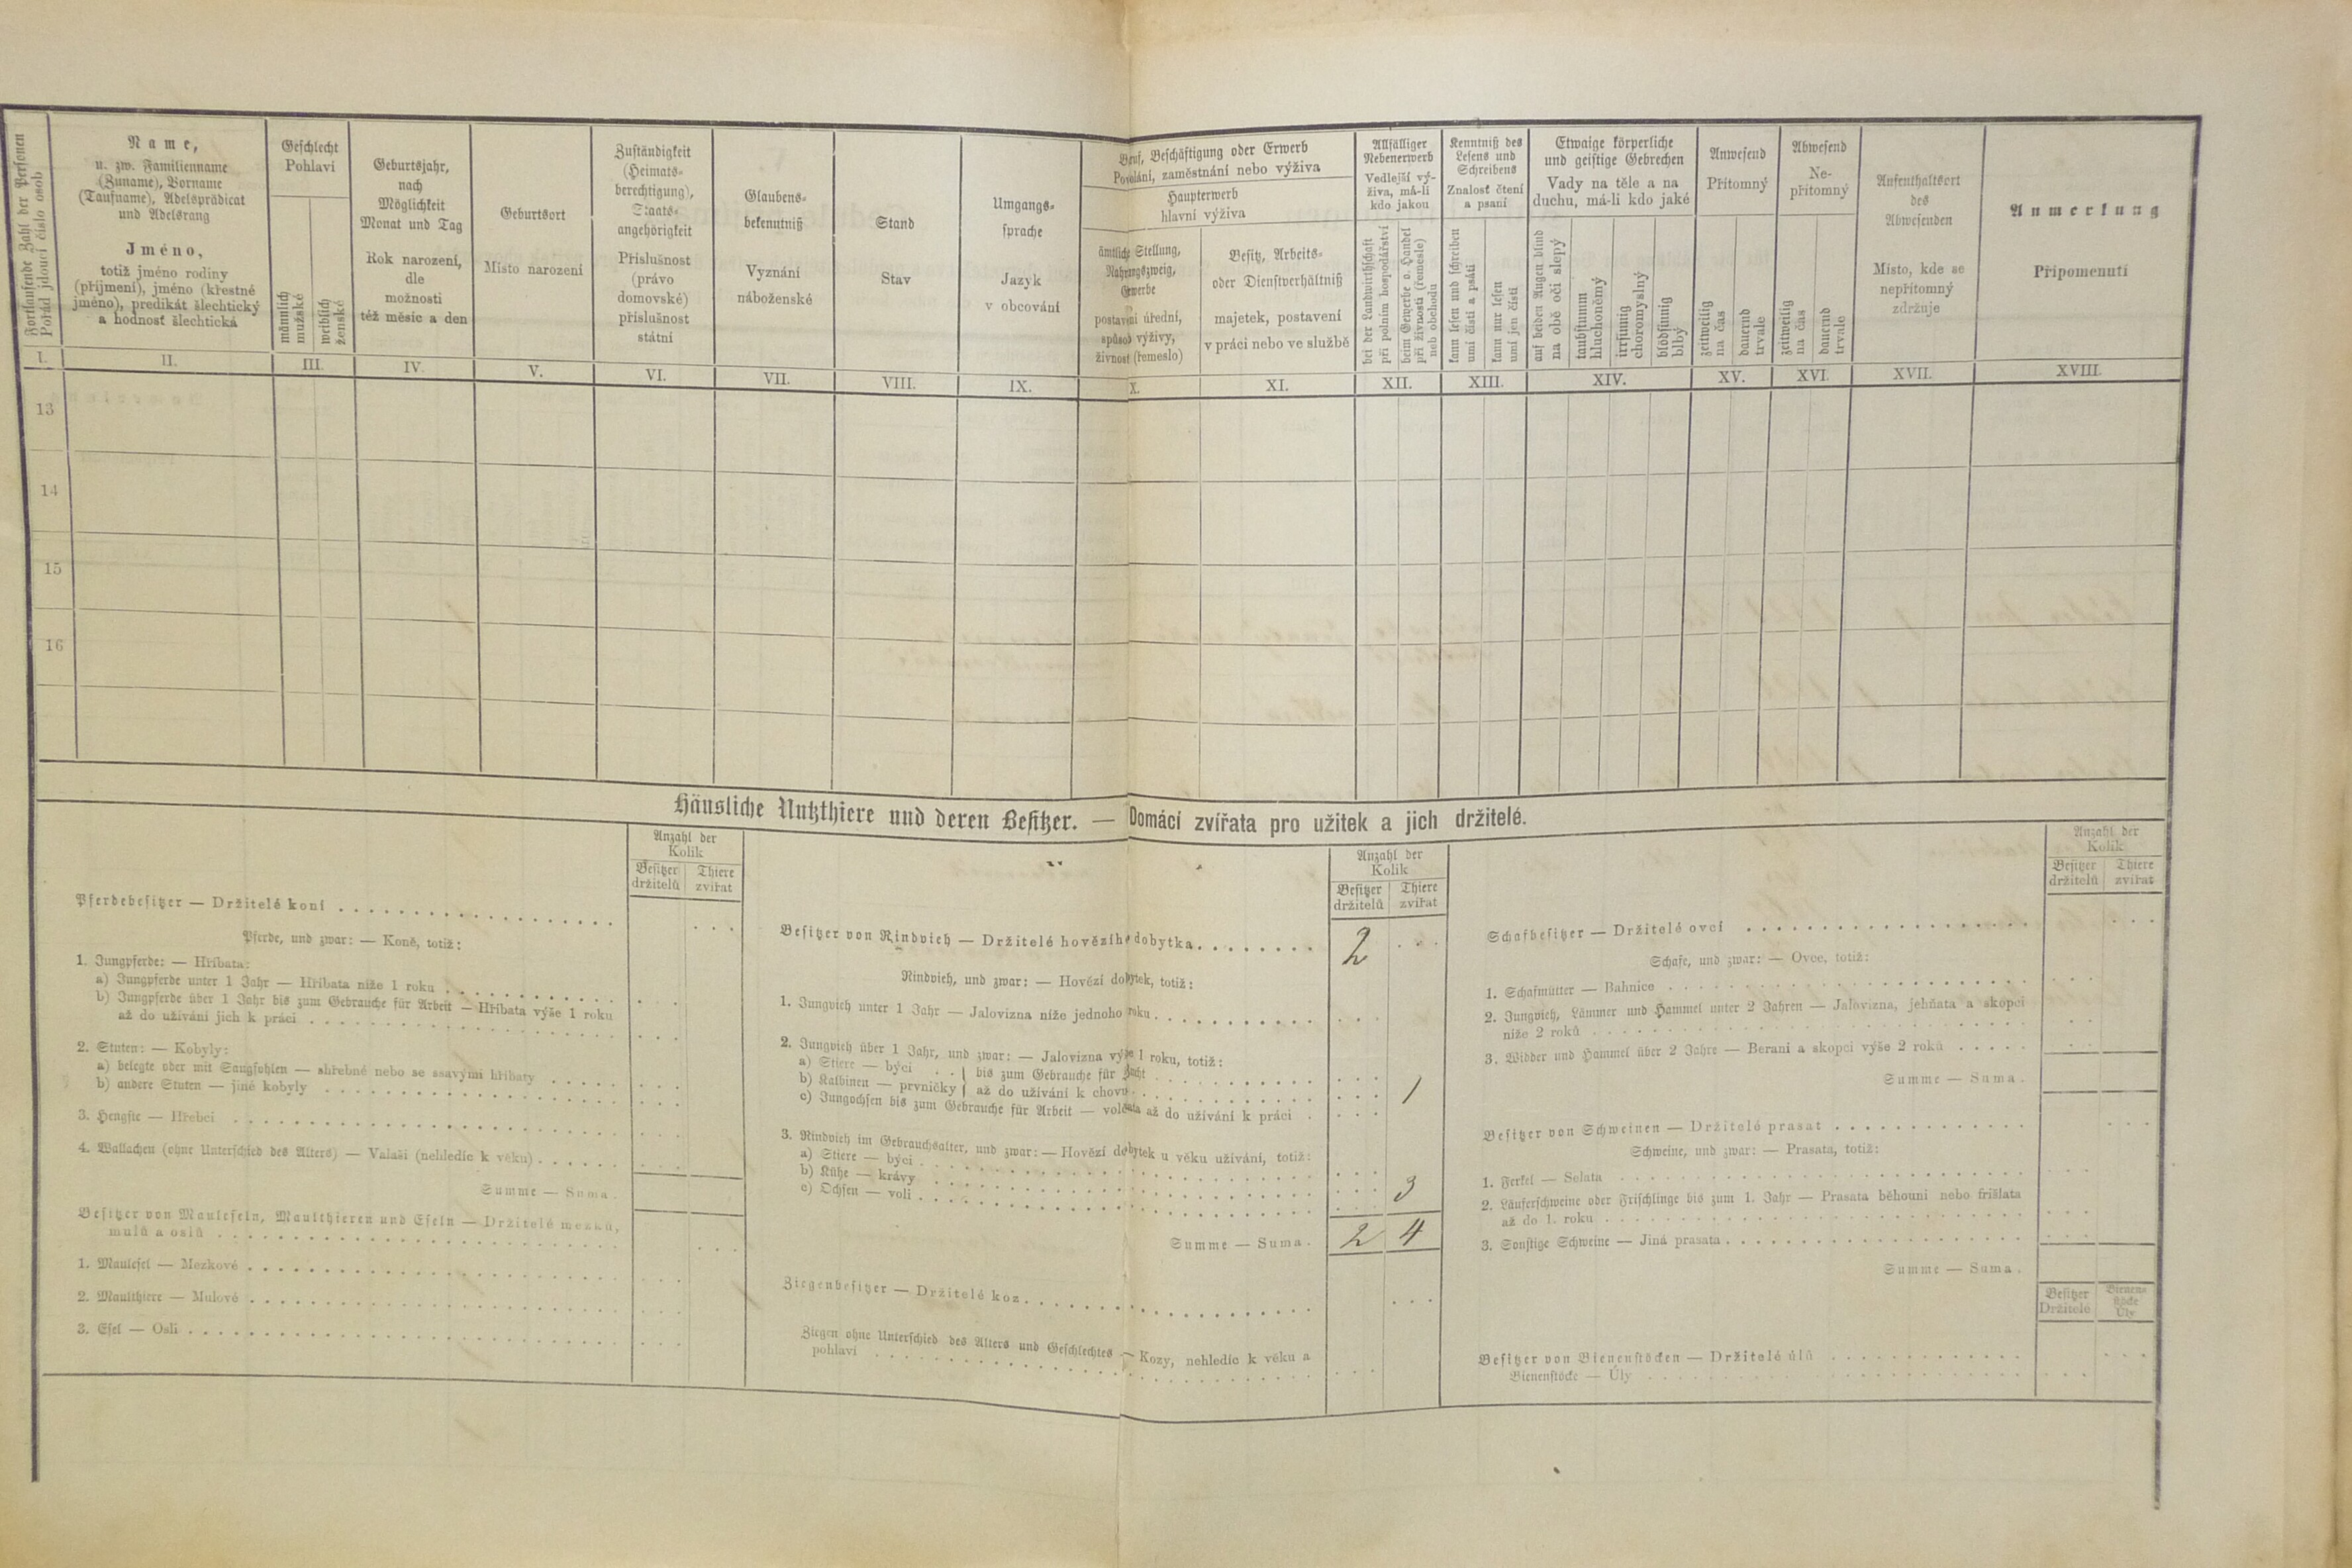 Fortlaufende Zahl der Personen
Pořád jdoucí číslo osob
Name,
u. zw. Familienname
(Zuname), Vorname
(Taufname), Adelsprädicat
und Adelsrang
Jméno,
totiž jméno rodiny
(příjmení), jméno (křestné
jméno), predikát šlechtický
a hodnosť šlechtická
Geschlecht
Pohlaví
männlich
mužské
weiblich
ženské
Geburtsjahr,
nach
Möglichkeit
Monat und Tag
Rok narození,
dle
možnosti
též měsíc a den
Geburtsort
Místo narození
Zuständigkeit
(Heimats-
berechtigung),
Staats-
angehörigkeit
Příslušnost
(právo
domovské)
příslušnost
státní
Glaubens-
bekenntniß
Vyznání
náboženské
Stand
Stav
Umgangs-
sprache
Jazyk
v obcování
Beruf, Beschäftigung oder Erwerb
Povolání, zaměstnání nebo výživa
Haupterwerb
hlavní výživa
ämtliche Stellung,
Nahrungszweig,
Gewerbe
postavení úřední,
spůsob výživy,
živnost (řemeslo)
Besitz, Arbeits-
oder Dienstverhältniß
majetek, postavení
v práci nebo ve službě
Allfälliger
Nebenerwerb
Vedlejší vý-
živa, má-li
kdo jakou
bei der Landwirthschaft
při polním hospodářství
beim Gewerbe o. Handel
při živnosti (řemesle)
neb obchodu
Kenntniß des
Lesens und
Schreibens
Znalosť čtení
a psaní
kann lesen und schreiben
umí čísti a psáti
kann nur lesen
umí jen čísti
Etwaige körperliche
und geistige Gebrechen
Vady na těle a na
duchu, má-li kdo jaké
auf beiden Augen blind
na obě oči slepý
taubstumm
hluchoněmý
irrsinnig
choromyslný
blödsinnig
blbý
Anwesend
Přítomný
zeitweilig
na čas
dauernd
trvale
Abwesend
Ne-
přítomný
zeitweilig
na čas
dauernd
trvale
Aufenthaltsort
des
Abwesenden
Místo, kde se
nepřítomný
zdržuje
Anmerkung
Připomenutí
I. II. III. IV. V. VI. VII. VIII. IX. X. XI. XII. XIII. XIV. XV. XVI. XVII. XVIII.
13
14
15
16
Häusliche Nutzthiere und deren Besitzer. — Domácí zvířata pro užitek a jich držitelé.
Anzahl der
Kolik
Besitzer Thiere
držitelů zvířat
Pferdebesitzer — Držitelé koní
Pferde, und zwar: — Koně, totiž:
1. Jungpferde: — Hříbata:
a) Jungpferde unter 1 Jahr — Hříbata níže 1 roku
b) Jungpferde über 1 Jahr bis zum Gebrauche für Arbeit — Hříbata výše 1 roku
až do užívání jich k práci
2. Stuten: — Kobyly:
a) belegte oder mit Saugfohlen — shřebné nebo se ssavými hříbaty
b) andere Stuten — jiné kobyly
3. Hengste — Hřebci
4. Wallachen (ohne Unterschied des Alters) — Valaši (nehledíc k věku)
Summe — Suma.
Besitzer von Mauleseln, Maulthieren und Eseln — Držitelé mezků,
mulů a oslů
1. Maulesel — Mezkové
2. Maulthiere — Mulové
3. Esel — Osli
Anzahl der
Kolik
Besitzer Thiere
držitelů zvířat
Besitzer von Rindvieh — Držitelé hovězího dobytka. 2
Rindvieh, und zwar: — Hovězí dobytek, totiž:
1. Jungvieh unter 1 Jahr — Jalovizna níže jednoho roku
2. Jungvieh über 1 Jahr, und zwar: — Jalovizna výše 1 roku, totiž:
a) Stiere — býci } bis zum Gebrauche für Zucht
b) Kalbinen — prvničky } až do užívání k chovu 1
c) Jungochsen bis zum Gebrauche für Arbeit — volčata až do užívání k práci
3. Rindvieh im Gebrauchsalter, und zwar: — Hovězí dobytek u věku užívání, totiž:
a) Stiere — býci
b) Kühe — krávy 3
c) Ochsen — voli
Summe — Suma. 2 4
Ziegenbesitzer — Držitelé koz
Ziegen ohne Unterschied des Alters und Geschlechtes — Kozy, nehledíc k věku a
pohlaví
Anzahl der
Kolik
Besitzer Thiere
držitelů zvířat
Schafbesitzer — Držitelé ovcí
Schafe, und zwar: — Ovce, totiž:
1. Schafmütter — Bahnice
2. Jungvieh, Lämmer und Hammel unter 2 Jahren — Jalovizna, jehňata a skopci
níže 2 roků
3. Widder und Hammel über 2 Jahre — Berani a skopci výše 2 roků
Summe — Suma.
Besitzer von Schweinen — Držitelé prasat
Schweine, und zwar: — Prasata, totiž:
1. Ferkel — Selata
2. Läuferschweine oder Frischlinge bis zum 1. Jahr — Prasata běhouni nebo frišlata
až do 1. roku
3. Sonstige Schweine — Jiná prasata
Summe — Suma.
Besitzer Bienen-
Držitelé stöcke
Úly
Besitzer von Bienenstöcken — Držitelé úlů
Bienenstöcke — Úly